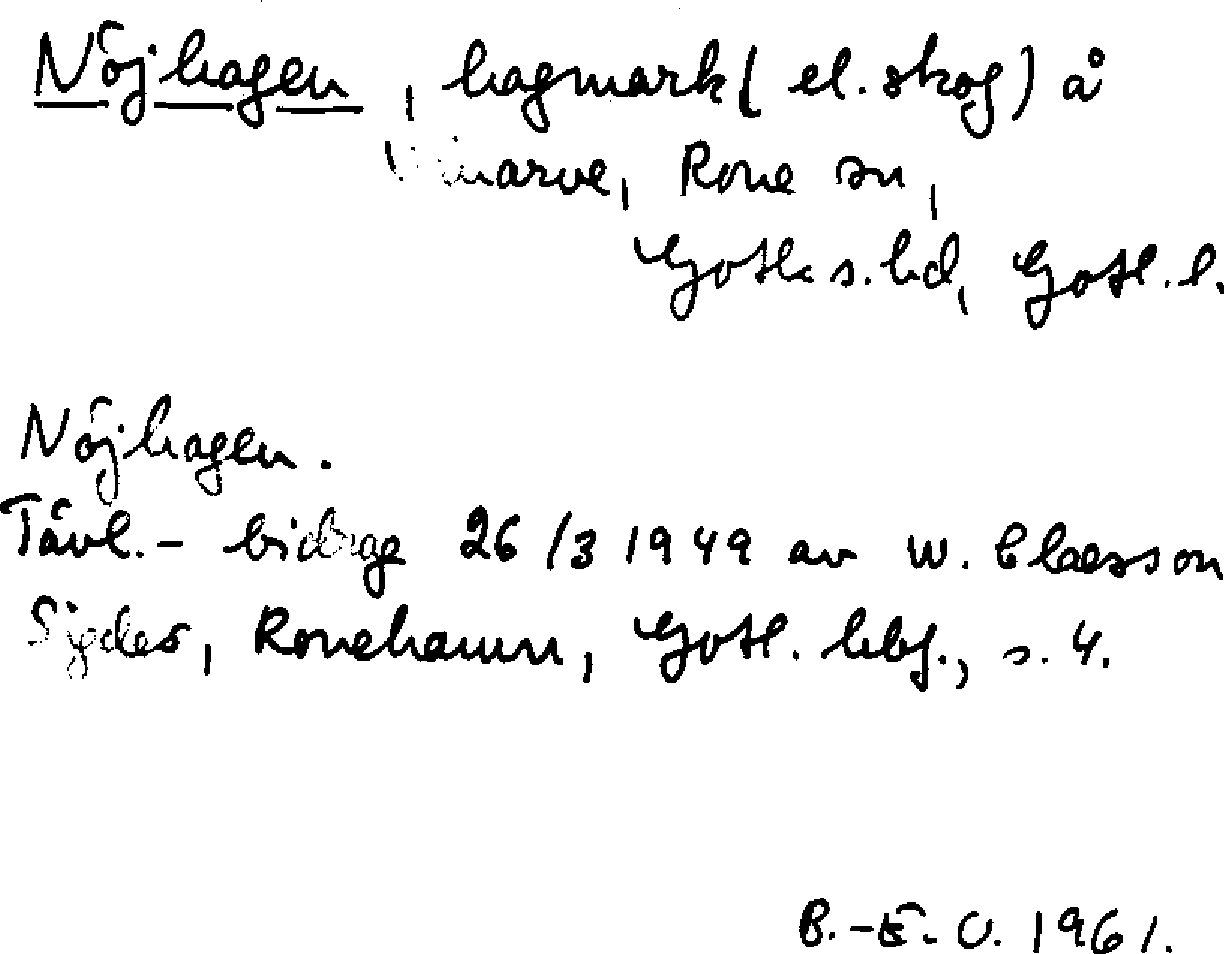 Nöjhagen, hagmark (el. skog) å
Rone sn,
Gotl. s. hd, Gotl. l.
Nöjhagen.
Tävl.-bidrag 26/3 1949 av W. Claesson
Sigdes, Ronehamn, Gotl. hbf., s. 4.
B.-E. O. 1961.